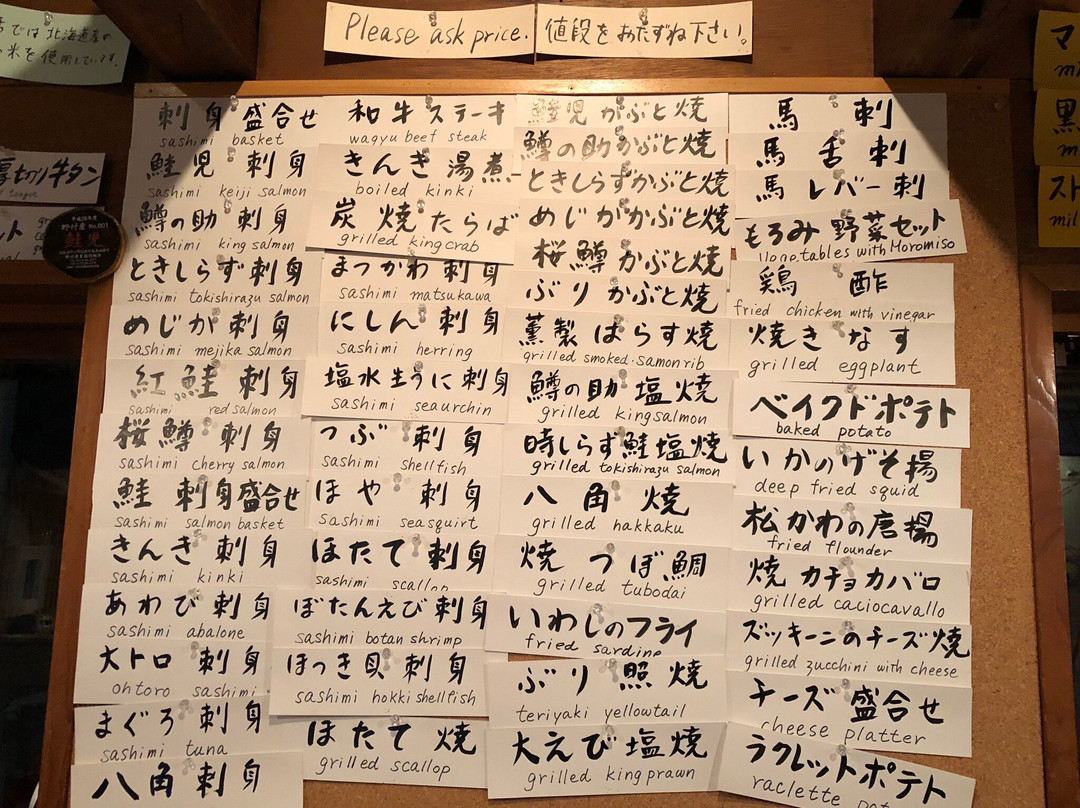 Please ask price.
値段をおたずね下さい。
では北海道産の
米を使用しています。
厚切り牛タン
刺身盛合せ
sashimi basket
鮭児刺身
sashimi keiji salmon
鱒の助刺身
sashimi king salmon
ときしらず刺身
sashimi tokishirazu salmon
めじか刺身
sashimi mejika salmon
紅鮭刺身
sashimi red salmon
桜鱒刺身
sashimi cherry salmon
鮭刺身盛合せ
sashimi salmon basket
きんき刺身
sashimi kinki
あわび刺身
sashimi abalone
大トロ刺身
ohtoro sashimi
まぐろ刺身
sashimi tuna
八角刺身
和牛ステーキ
wagyu beef steak
きんき湯煮
boiled kinki
炭焼たらば
grilled king crab
まつかわ刺身
sashimi matsukawa
にしん刺身
sashimi herring
塩水生うに刺身
sashimi seaurchin
つぶ刺身
sashimi shellfish
ほや刺身
sashimi seasquirt
ほたて刺身
sashimi scallop
ぼたんえび刺身
sashimi botan shrimp
ほっき貝刺身
sashimi hokki shellfish
ほたて焼
grilled scallop
鮭児かぶと焼
鱒の助かぶと焼
ときしらずかぶと焼
めじかかぶと焼
桜鱒かぶと焼
ぶりかぶと焼
薫製はらす焼
grilled smoked. samon rib
鱒の助塩焼
grilled king salmon
時しらず鮭塩焼
grilled tokishirazu salmon
八角焼
grilled hakkaku
焼つぼ鯛
grilled tubodai
いわしのフライ
fried sardine
ぶり照焼
teriyaki yellowtail
大えび塩焼
grilled king prawn
馬刺
馬舌刺
馬レバー刺
もろみ野菜セット
vegetables with Moromiso
鶏酢
fried chicken with vinegar
焼きなす
grilled eggplant
ベイクドポテト
baked potato
いかのげそ揚
deep fried squid
松かわの唐揚
fried flounder
焼カチョカバロ
grilled caciocavallo
ズッキーニのチーズ焼
grilled zucchini with cheese
チーズ盛合せ
cheese platter
ラクレットポテト
raclette